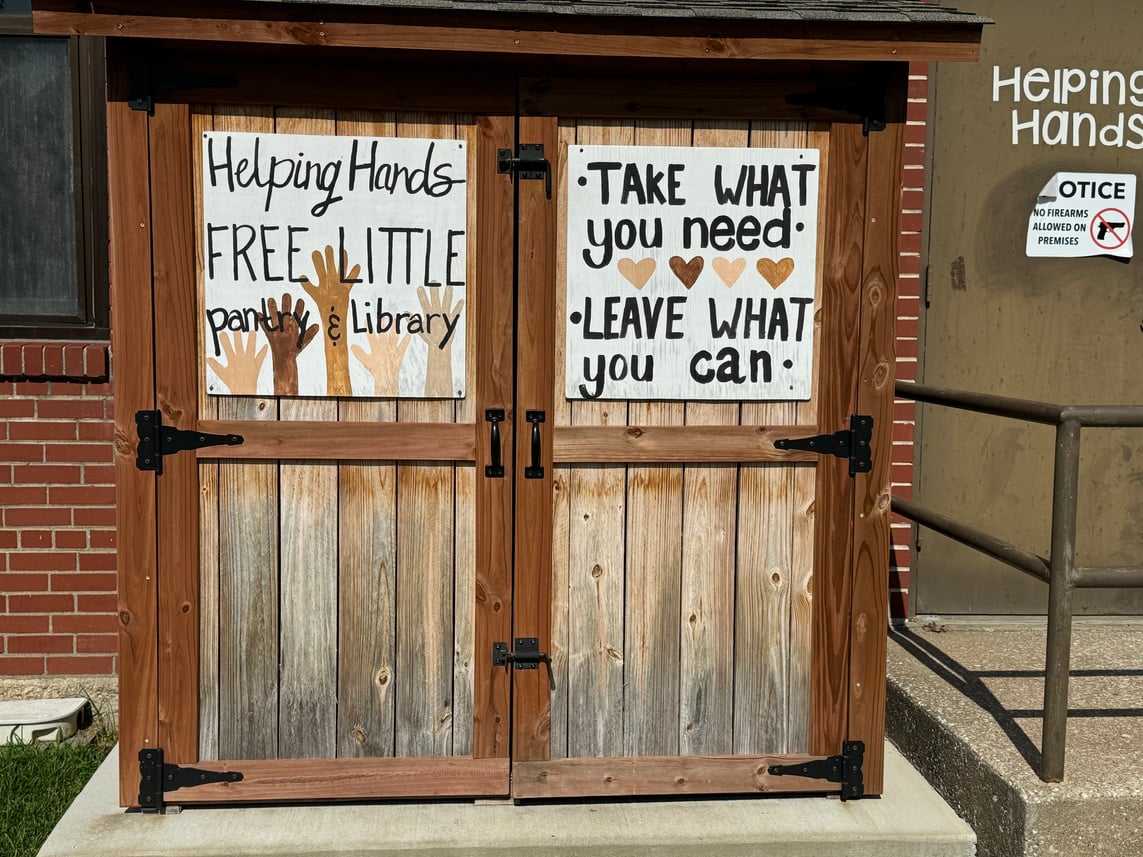 Helping Hands
FREE LITTLE
pantry & Library
•TAKE WHAT
you need•
•LEAVE WHAT
you can•
Helping
Hands
OTICE
NO FIREARMS
ALLOWED ON
PREMISES